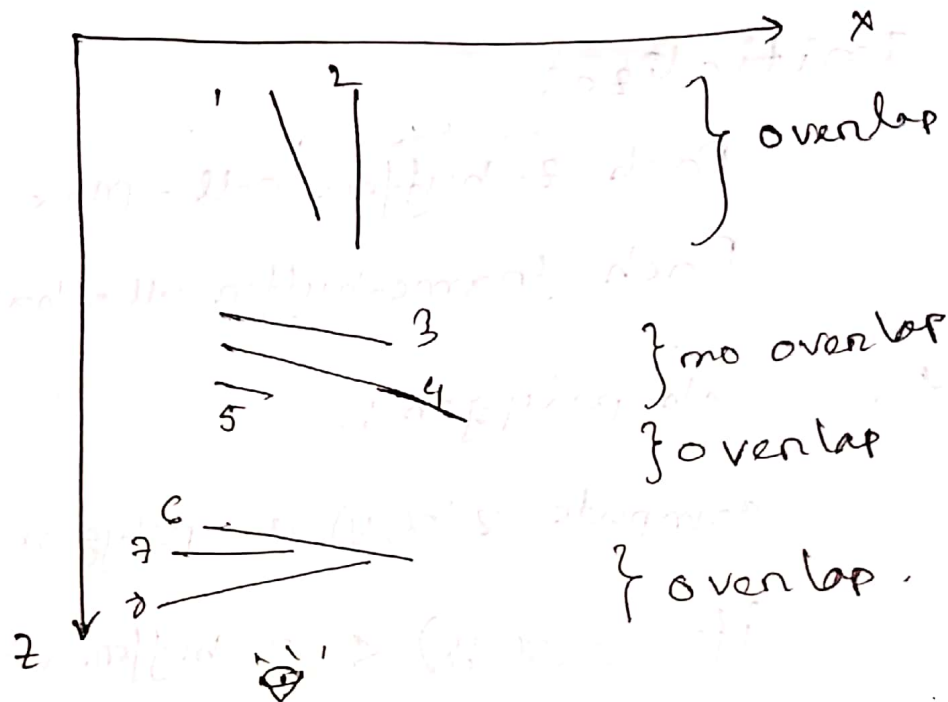 X
1
2
} overlap
3
} no overlap
4
5
} overlap
6
7
8
} overlap.
Z